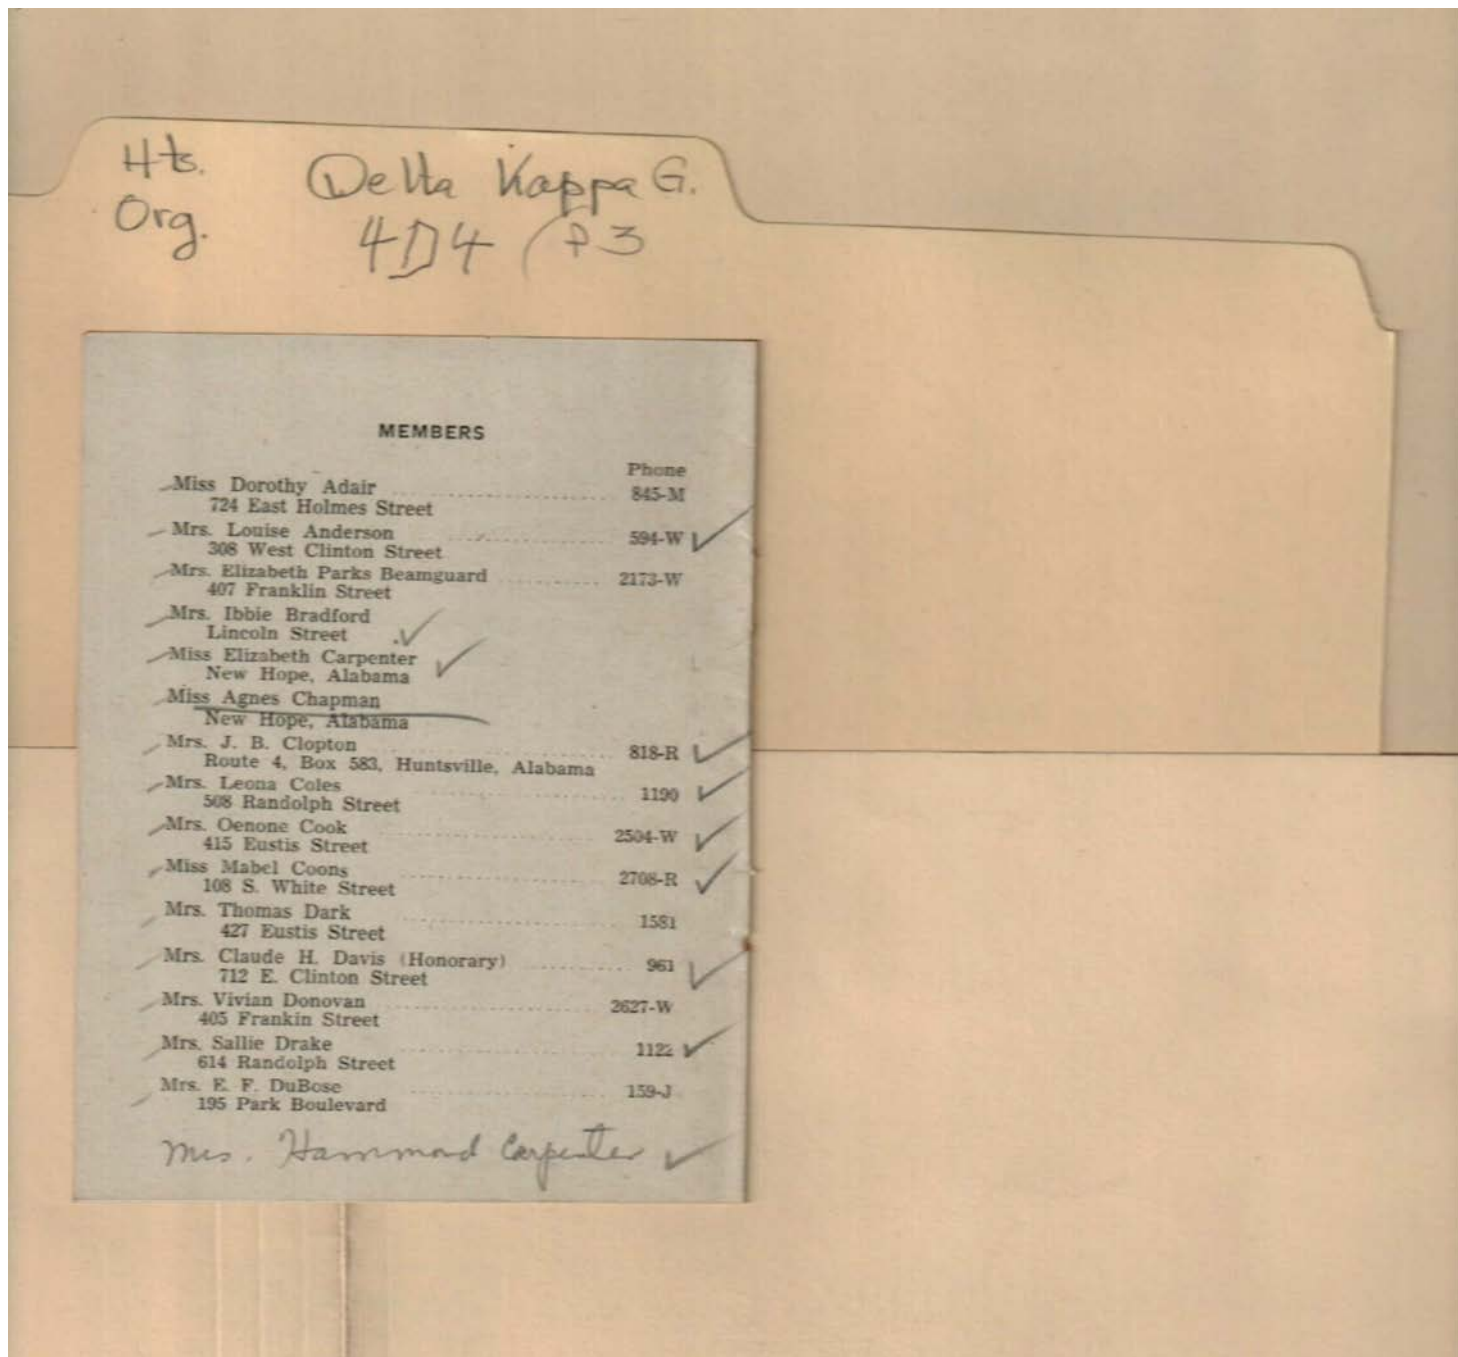 Hts.
Org.
Delta Kappa G.
4D4
MEMBERS
Phone
Miss Dorothy Adair ........ 845-M
724 East Holmes Street
Mrs. Louise Anderson ........ 594-W ✓
308 West Clinton Street
Mrs. Elizabeth Parks Beamguard ........ 2173-W
407 Franklin Street
Mrs. Ibbie Bradford
Lincoln Street ✓
Miss Elizabeth Carpenter ✓
New Hope, Alabama
Miss Agnes Chapman
New Hope, Alabama
Mrs. J. B. Clopton ........ 818-R ✓
Route 4, Box 583, Huntsville, Alabama
Mrs. Leona Coles ........ 1190 ✓
508 Randolph Street
Mrs. Oenone Cook ........ 2504-W ✓
415 Eustis Street
Miss Mabel Coons ........ 2708-R ✓
108 S. White Street
Mrs. Thomas Dark ........ 1581
427 Eustis Street
Mrs. Claude H. Davis (Honorary) ........ 961 ✓
712 E. Clinton Street
Mrs. Vivian Donovan ........ 2627-W
405 Frankin Street
Mrs. Sallie Drake ........ 1122 ✓
614 Randolph Street
Mrs. E. F. DuBose ........ 159-J
195 Park Boulevard
Mrs. Hammond Carpenter ✓